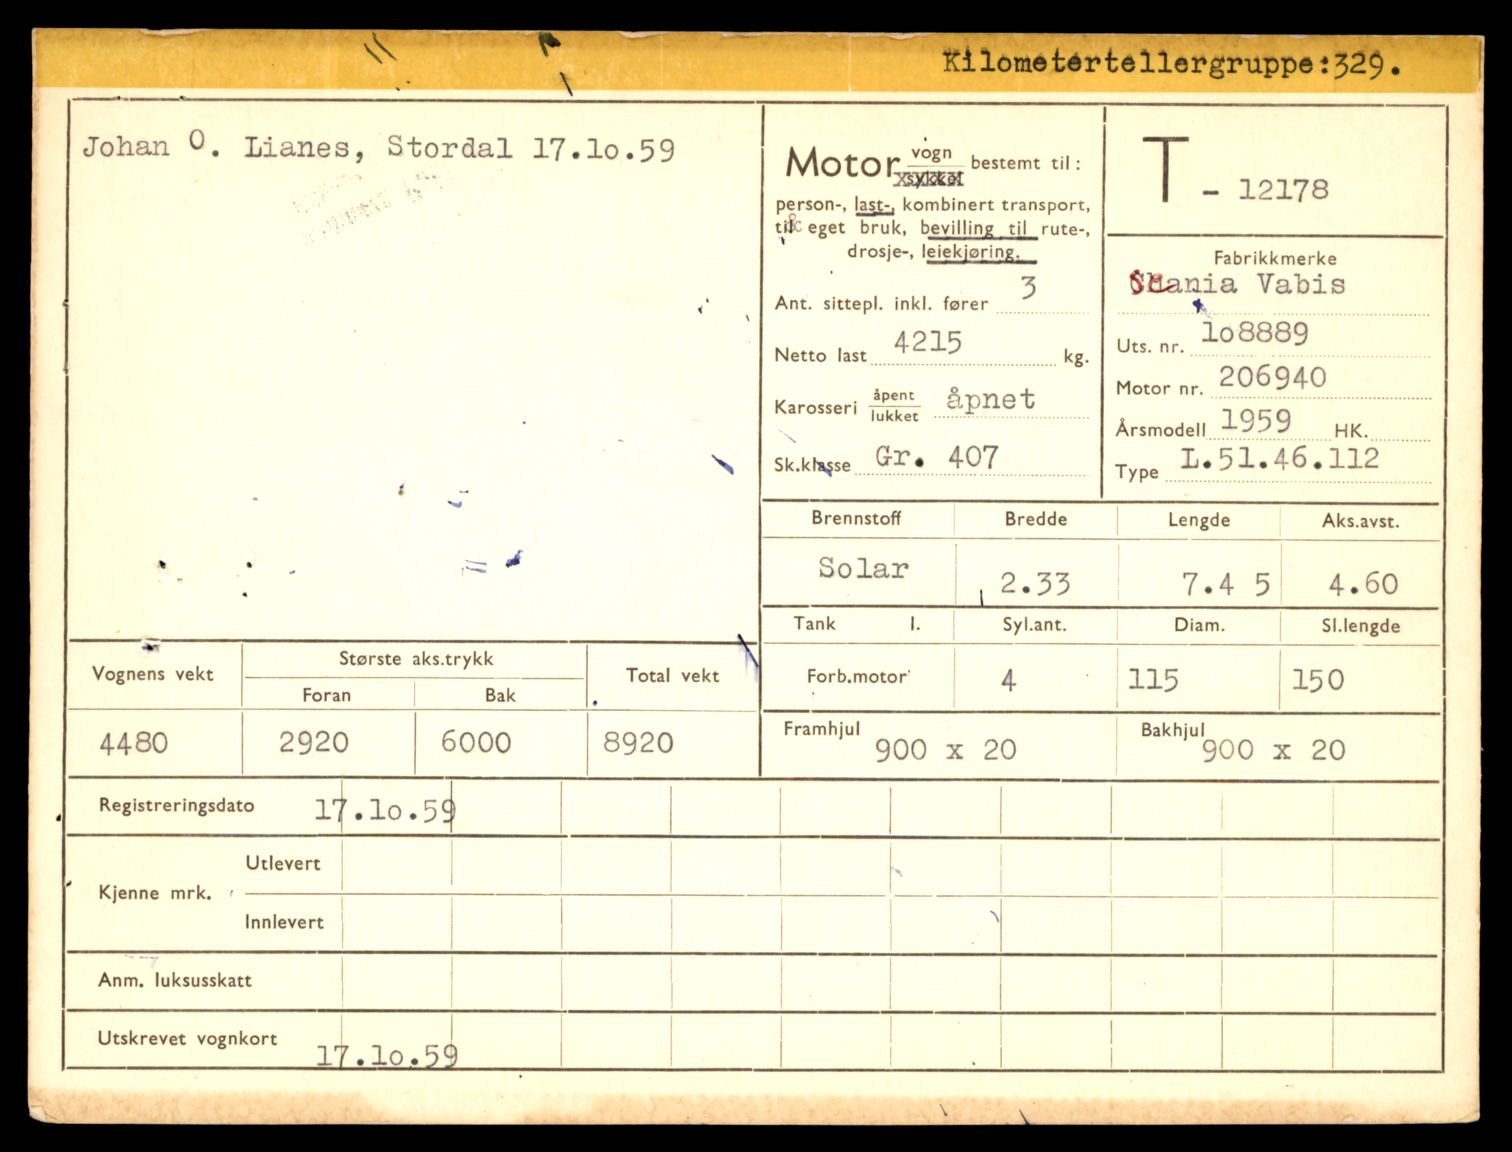 Kilometertellergruppe:329.
Johan O. Lianes, Stordal 17.lo.59
Motor vogn
sykkel
bestemt til:
person-, last-, kombinert transport,
til eget bruk, bevilling til rute-,
drosje-, leiekjøring.
Ant. sittepl. inkl. fører 3
Netto last 4215 kg.
Karosseri åpent
lukket
åpnet
Sk.klasse Gr. 407
T - 12178
Fabrikkmerke
Scania Vabis
Uts. nr. lo8889
Motor nr. 206940
Årsmodell 1959 HK.
Type L.51.46.112
Brennstoff Bredde Lengde Aks.avst.
Solar 2.33 7.4 5 4.60
Tank l. Syl.ant. Diam. Sl.lengde
Forb.motor 4 115 150
Framhjul 900 x 20 Bakhjul 900 x 20
Vognens vekt Største aks.trykk Total vekt
Foran Bak
4480 2920 6000 8920
Registreringsdato 17.lo.59
Kjenne mrk. Utlevert
Innlevert
Anm. luksusskatt
Utskrevet vognkort 17.lo.59